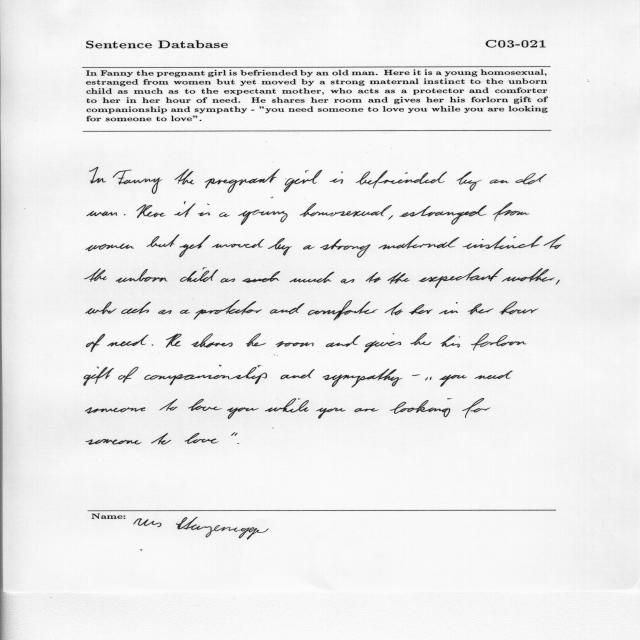 Sentence Database C03-021
In Fanny the pregnant girl is befriended by an old man. Here it is a young homosexual,
estranged from women but yet moved by a strong maternal instinct to the unborn
child as much as to the expectant mother, who acts as a protector and comforter
to her in her hour of need. He shares her room and gives her his forlorn gift of
companionship and sympathy - "you need someone to love you while you are looking
for someone to love".
In Fanny the pregnant girl is befriended by an old
man. Here it is a young homosexual, estranged from
women but yet moved by a strong maternal instinct to
the unborn child as such much as to the expectant mother,
who acts as a protector and comforter to her in her hour
of need. He shares he room and gives her his forloon
gift of companionship and sympathy - „ you need
someone to love you while you are looking for
someone to love ".
Name: